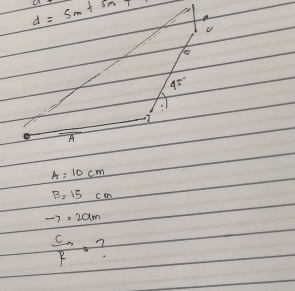 d = 5m + 5m +
45°
A
A = 10 cm
B = 15 cm
→ = 20cm
C
= ?